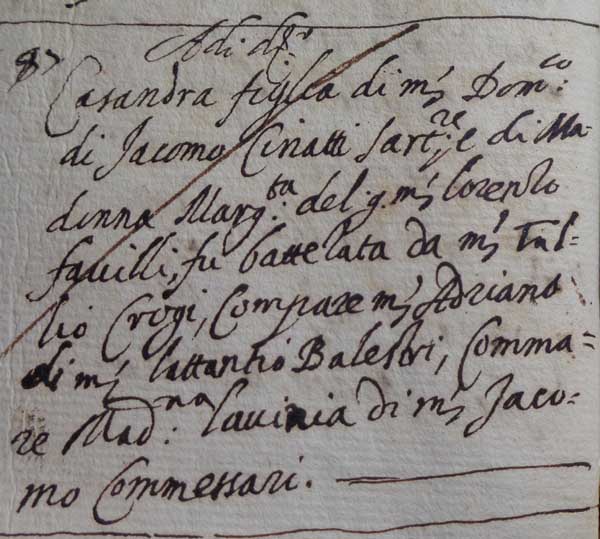 Adi d.º
87 Casandra figlia di mʃ Dom.co
di Jacomo Cinatti sart.re e di Ma-
donna Marg.ta del q. mʃ lorenzo
favilli, fu battezata da mʃ Tul-
lio Crogi, Compare mʃ Adriano
di mʃ lattantio Balestri, Comma-
re Mad.na lavinia di mʃ Jaco-
mo Commessari.